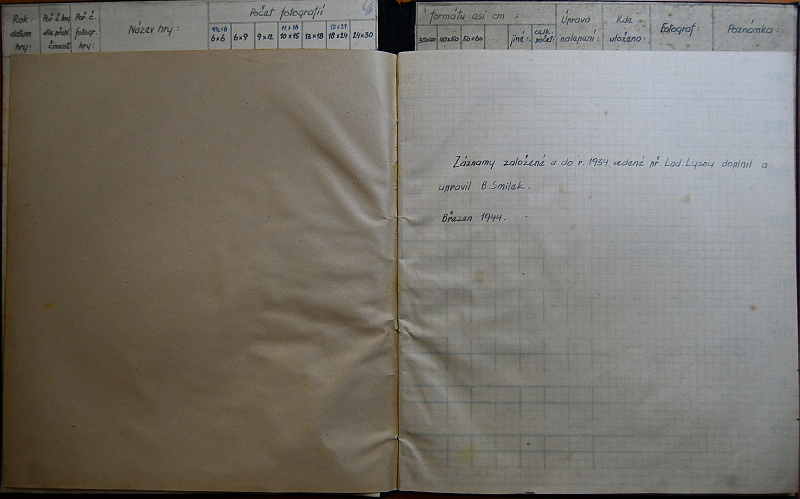 Rok: datum hry:
Poř. č. hry dle přehl. činnosti
Poř. č. fotogr. hry:
Název hry:
Počet fotografií
6x6
6x9
9x12
10x15
13x18
18x24
24x30
formátu asi cm:
30x40
40x50
50x60
jiné:
celk. počet:
Úprava nalepení:
Kde uloženo:
Fotograf:
Poznámka:
Záznamy založené a do r. 1934 vedené př. Lad. Lysou doplnil a
upravil B. Smilek.
Březen 1944.